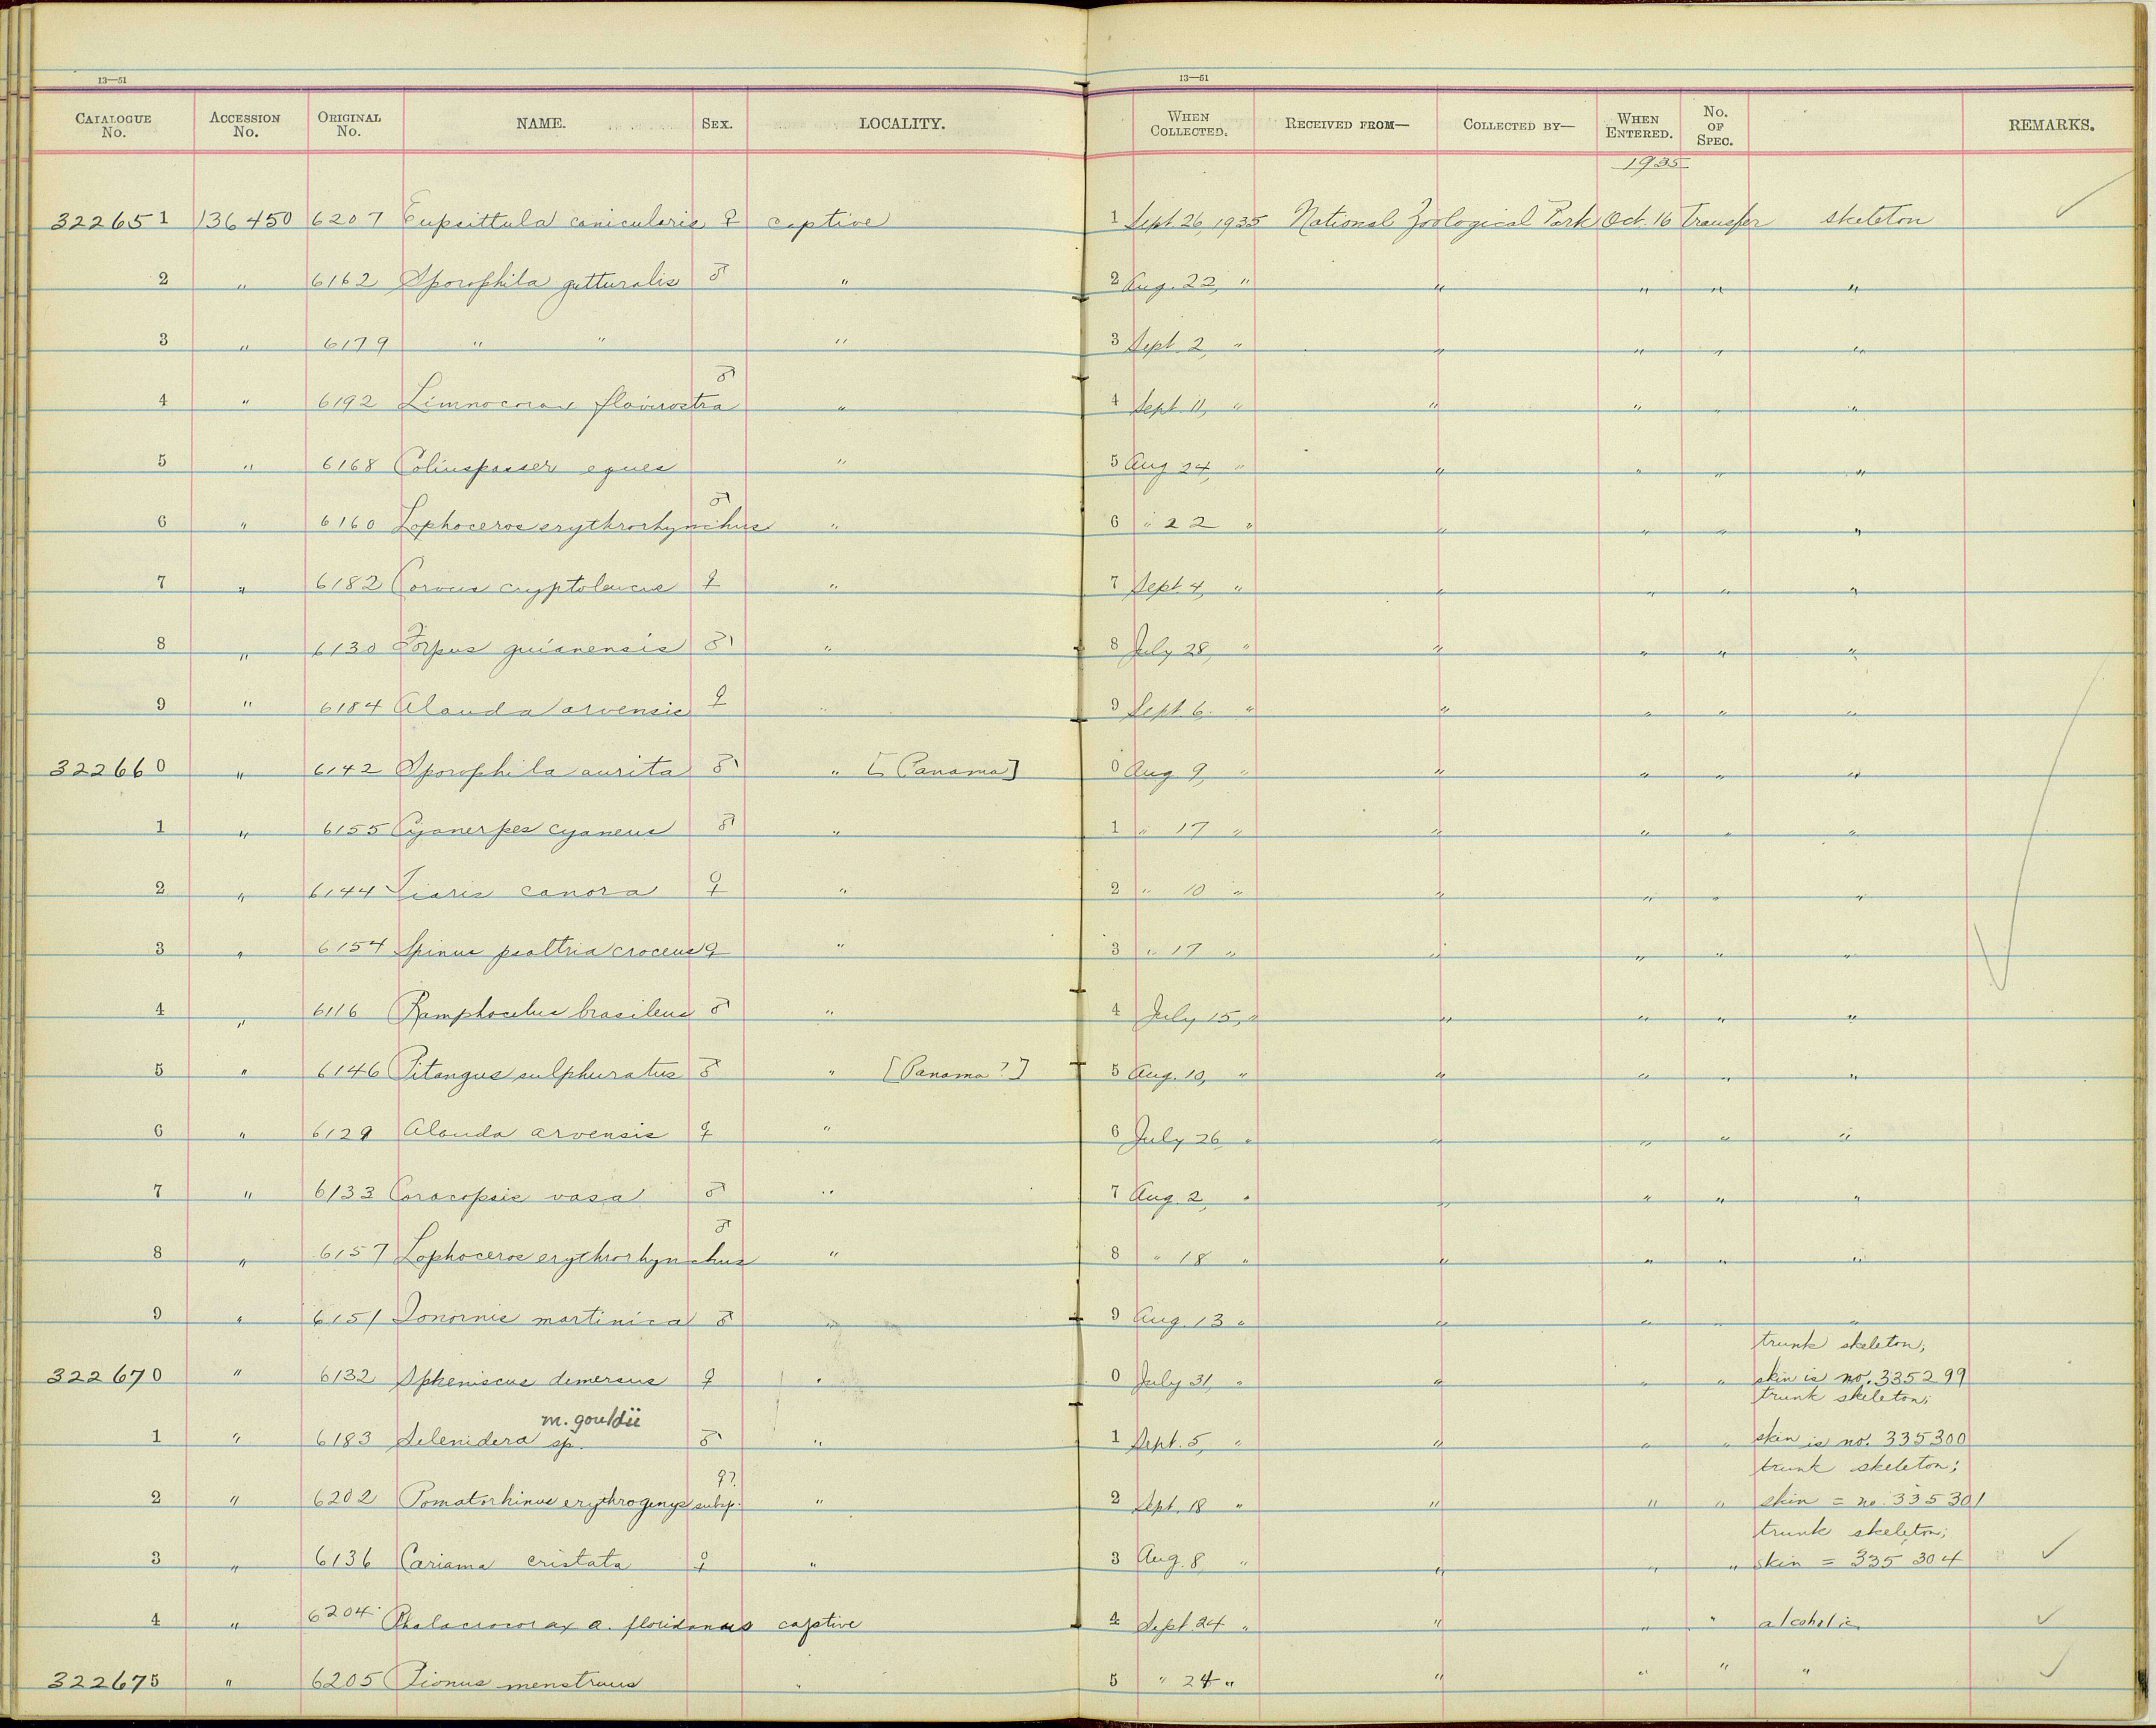 13—51 13—51
CATALOGUE No. ACCESSION No. ORIGINAL No. NAME. SEX. LOCALITY. WHEN COLLECTED. RECEIVED FROM— COLLECTED BY— WHEN ENTERED. No. OF SPEC. REMARKS.
1935
322651 136450 6207 Eupsittula canicularis ♀ captive 1 Sept. 26, 1935 National Zoological Park Oct. 16 Transfer skeleton ✓
2 " 6162 Sporophila gutturalis ♂ " 2 Aug. 22, " " " " "
3 " 6179 " " " 3 Sept. 2, " " " " "
4 " 6192 Limnocorax flavirostra ♂ " 4 Sept. 11, " " " " "
5 " 6168 Coliuspasser eques " 5 Aug 24, " " " " "
6 " 6160 Lophoceros erythrorhynchus ♂ " 6 " 22 " " " " "
7 " 6182 Corvus cryptoleucus ♀ " 7 Sept 4, " " " " "
8 " 6130 Forpus guianensis ♂ " 8 July 28, " " " " "
9 " 6184 Alauda arvensis ♀ " 9 Sept. 6. " " " " "
322660 " 6142 Sporophila aurita ♂ " [Panama] 0 Aug 9, " " " " "
1 " 6155 Cyanerpes cyaneus ♂ " 1 " 17 " " " " "
2 " 6144 Tiaris canora ♀ " 2 " 10 " " " " "
3 " 6154 Spinus psaltria croceus ♀ " 3 " 17 " " " " " ✓
4 " 6116 Ramphocelus brasileus ♂ " 4 July 15, " " " " "
5 " 6146 Pitangus sulphuratus ♂ " [Panama?] 5 Aug. 10, " " " " "
6 " 6129 Alauda arvensis ♀ " 6 July 26 " " " " "
7 " 6133 Coracopsis vasa ♂ " 7 Aug. 2, " " " " "
8 " 6157 Lophoceros erythrorhynchus ♂ " 8 " 18 " " " " "
9 " 6151 Ionornis martinica ♂ " 9 Aug. 13 " " " " "
trunk skeleton;
322670 " 6132 Spheniscus demersus ♀ " 0 July 31, " " " " skin is no. 335299
trunk skeleton;
m. gouldii
1 " 6183 Selenidera sp. ♂ " 1 Sept. 5, " " " " skin is no. 335300
trunk skeleton;
2 " 6202 Pomatorhinus erythrogenys subsp. ♀? " 2 Sept. 18 " " " " skin = no. 335301
trunk skeleton;
3 " 6136 Cariama cristata ♀ " 3 Aug. 8, " " " " skin = 335304 ✓
4 " 6204 Phalacrocorax a. floridanus captive 4 Sept. 24 " " " " alcoholic ✓
322675 " 6205 Pionus menstruus " 5 " 24 " " " " " ✓